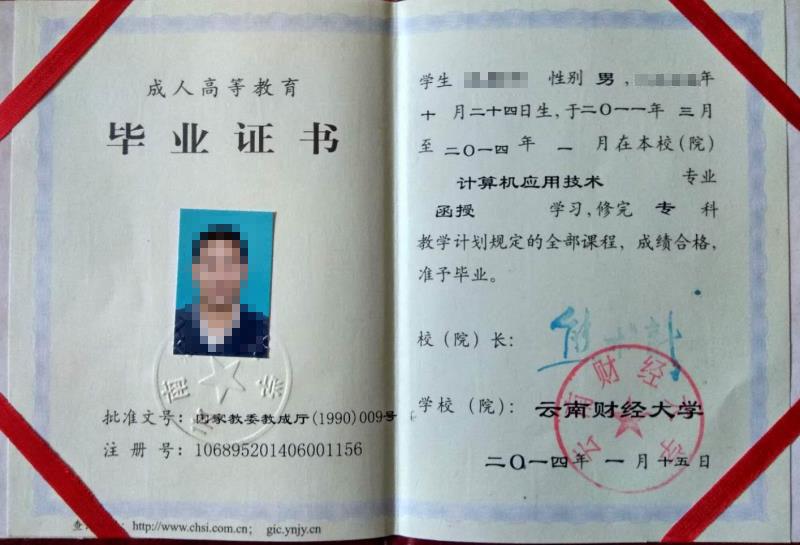 成人高等教育
毕业证书
批准文号：国家教委教成厅(1990)009号
注册号：106895201406001156
http://www.chsi.com.cn； gic.ynjy.cn
学生 性别 男， 年
十月二十四日生，于二〇一一年 三月
至 二〇一四 年 一 月在本校（院）
计算机应用技术 专业
函授 学习，修完 专 科
教学计划规定的全部课程，成绩合格，
准予毕业。
校（院）长：
学校（院）：云南财经大学
二〇一四年 一 月十五日